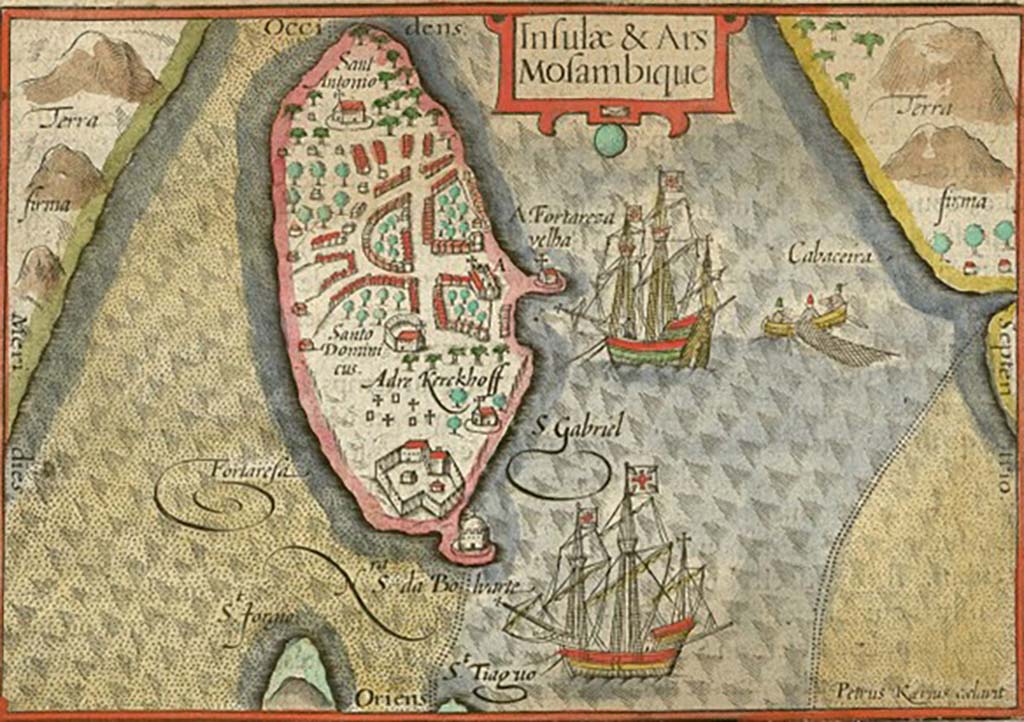 Occi dens
Insulæ & Ars
Mosambique
Sant
Antonio
Terra
firma
Terra
firma
A Fortareza
velha
Cabaceira
A
Meri
dies
Septen
trio
Santo
Domini
cus.
Adre Kerckhoff
S. Gabriel
Fortaresa
Sra da Boilvarte
St Jorgio
St Tiaguo
Oriens
Petrus Kærius cælavit